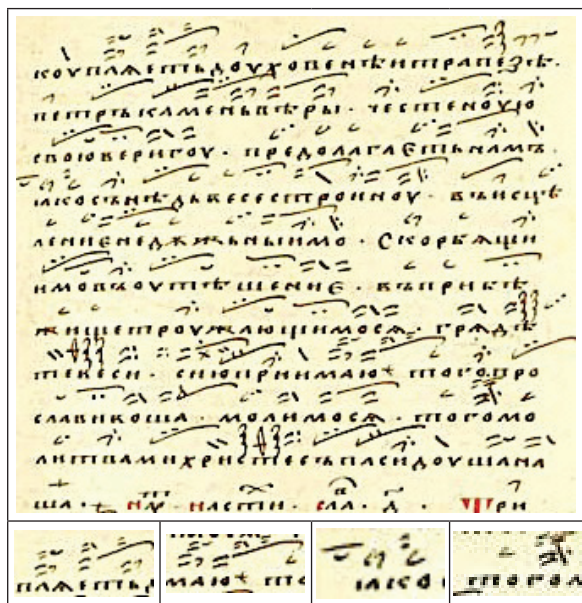 коупляеть доуховенѣи трапезѣ·
петръ камень вѣры· честеноую
свою веригоу· предолагаєть намъ
ꙗко сънѣдь весестроиноу· въ исцѣ
лениє недѫжьныимо· скорбѧщи
имо въ оутѣшениє· въ прибѣ
жище троужающимосѧ· грѧдѣ
те веси· сию приимаю тогопро
славивоша· молимосѧ· тогомо
литвами христе съпаси доуша на
ша·
плѧеть
маю то
ꙗко
тогом